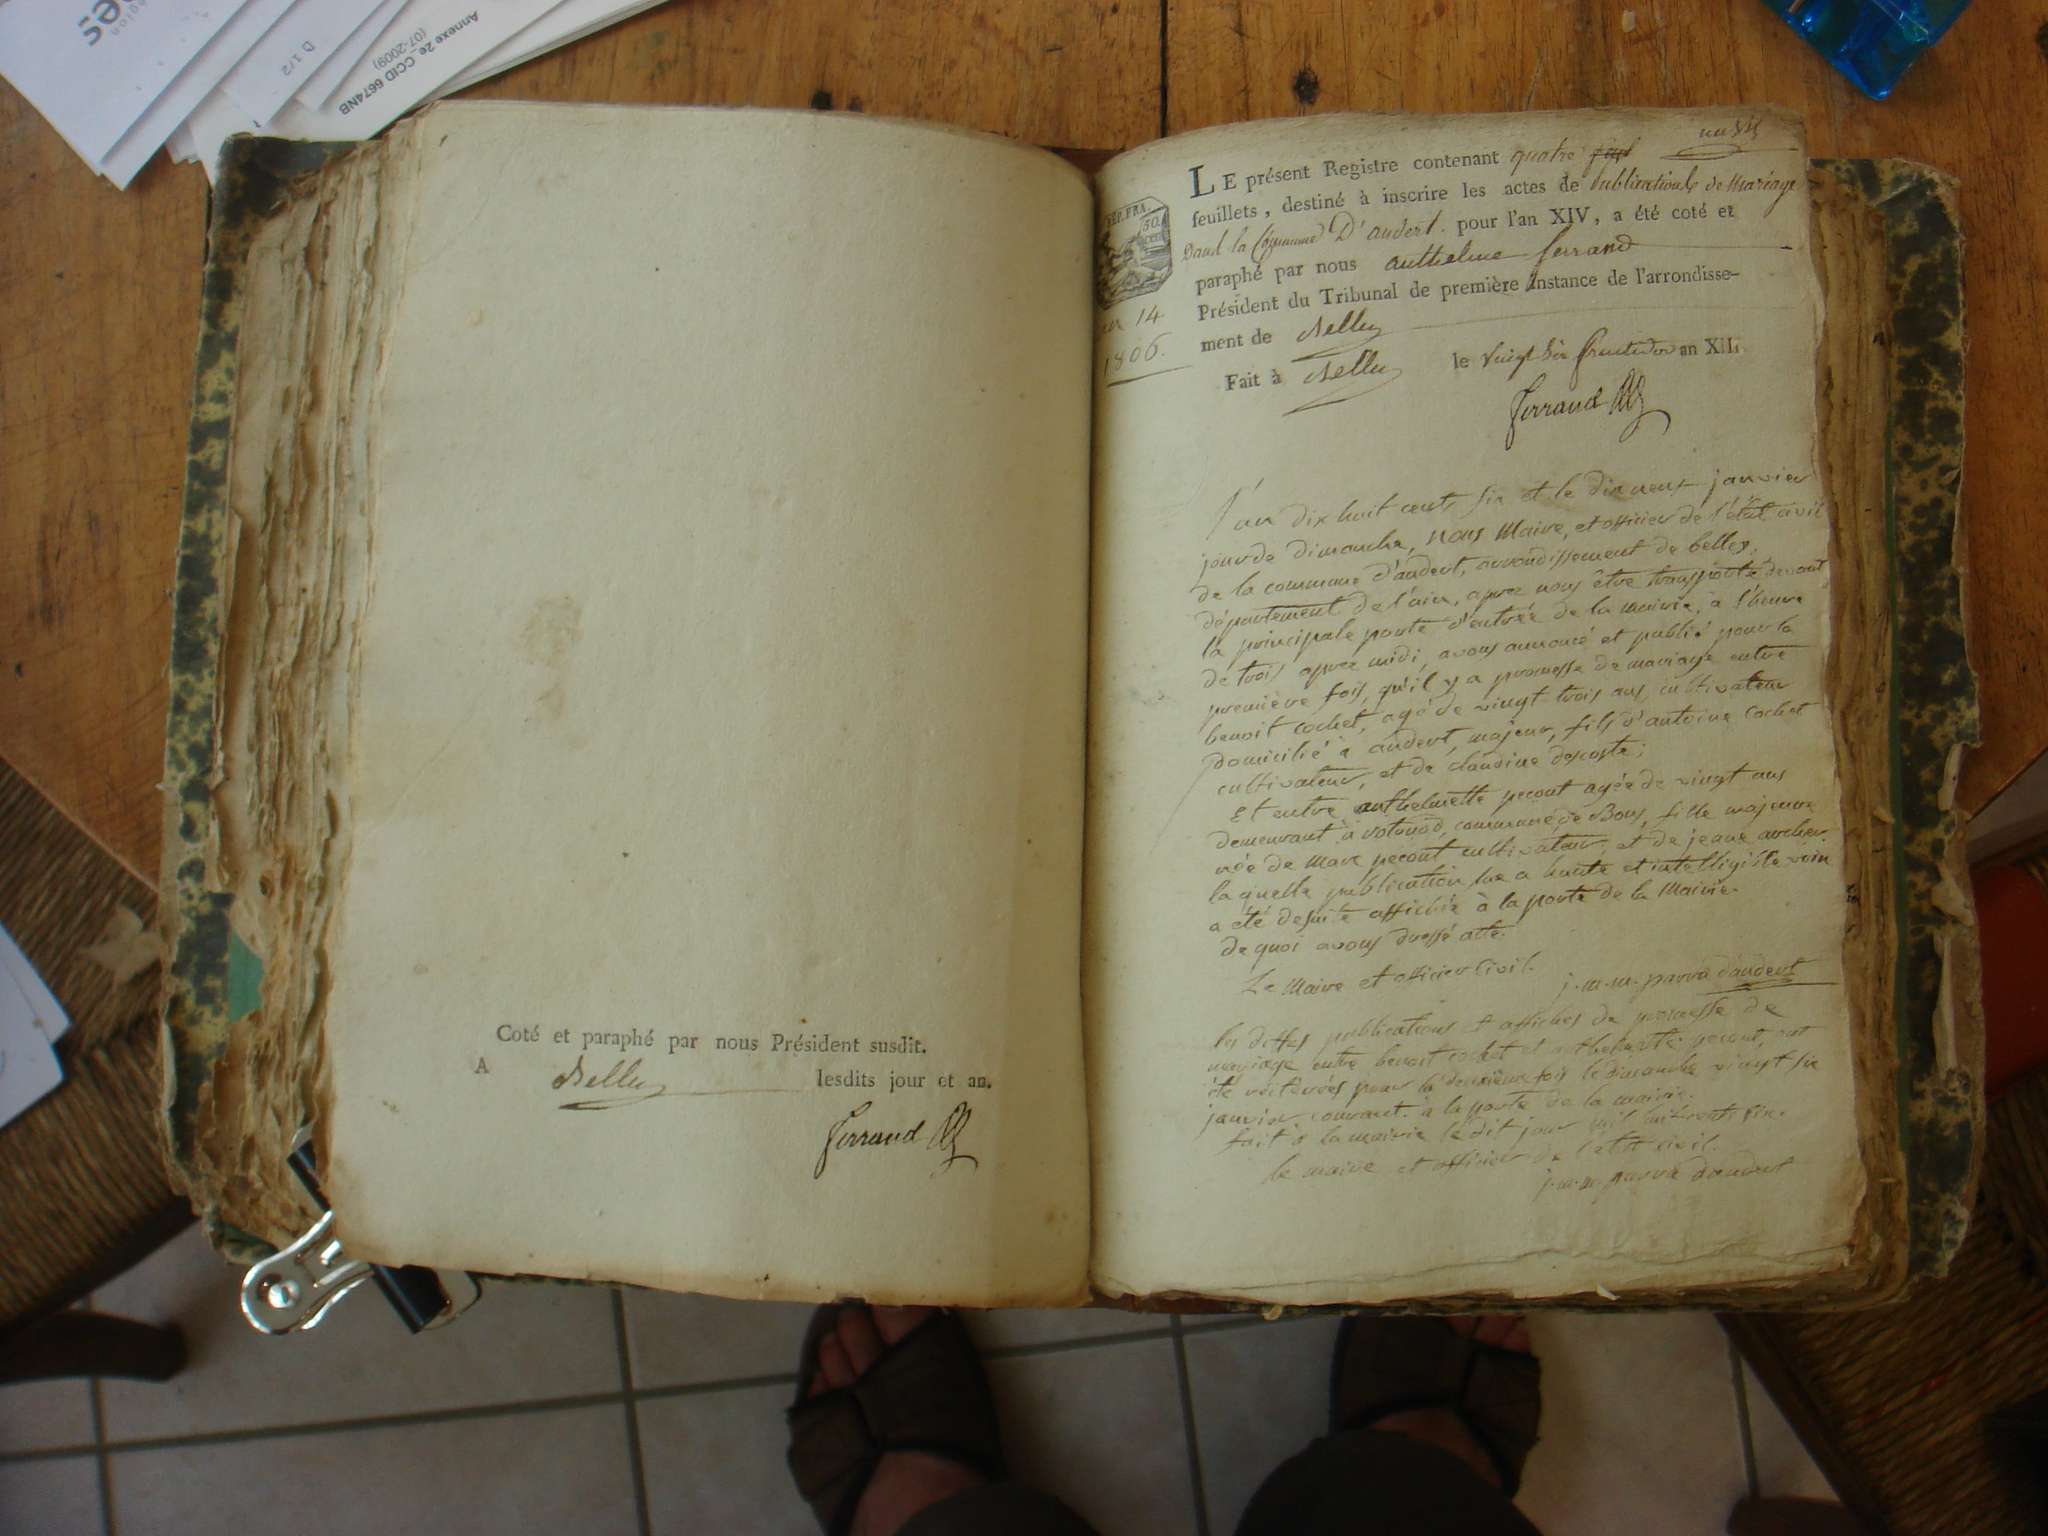 Annexe 2e_CCID 6674NB
(07-2009)
D 1/2
Coté et paraphé par nous Président susdit.
A Belley lesdits jour et an.
Ferrand
LE présent Registre contenant quatre
feuillets, destiné à inscrire les actes de publications de mariage
dans la Commune D'andert pour l'an XIV, a été coté et
paraphé par nous anthelme ferrand
Président du Tribunal de première instance de l'arrondisse-
ment de Belley
Fait à Belley le vingt six fructidor an XIII
Ferrand
REP. FRA.
50
an 14
1806.
l'an dix huit cents six et le dix neuf janvier
jour de dimanche, nous Maire, et officier de l'état civil
de la commune d'andert, arrondissement de belley,
département de l'ain, aprez nous être transporté devant
la principale porte d'entrée de la mairie, à l'heure
de trois aprez midi, avons annoncé et publié pour la
première fois, qu'il y a promesse de mariage entre
benoit cochet, agé de vingt trois ans, cultivateur
domicilié à andert, majeur, fils d'antoine cochet
cultivateur, et de claudine descoste;
Et entre anthelmette pecout agée de vingt ans
demeurant à votonod, commune de Bons, fille majeure
née de marc pecout cultivateur, et de jeane archer.
laquelle publication lue a haute et intelligible voix
a été desuite affichée à la porte de la Mairie.
de quoi avons dressé acte.
Le Maire et officier civil.
j. m. m. parra d'andert
les dittes publications et affiches de promesse de
mariage entre benoit cochet et anthelmette pecout, ont
été réitérées pour la deuxième fois le dimanche vingt six
janvier courant. à la porte de la mairie.
fait à la mairie le dit jour mil huit cent six.
le maire et officier de l'etat civil.
j. m. m. parra dandert